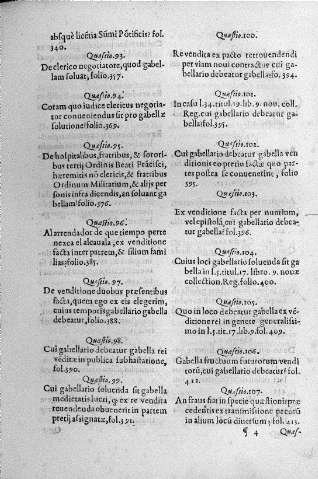 absq; licētia Sūmi Pōtificis? fol.
340.
Quæstio.93.
De clerico negotiatore, quod gabel-
lam soluat, folio.357.
Quæstio.94.
Coram quo iudice clericus negotia-
tor conueniendus sit pro gabellæ
solutione? folio.369.
Quæstio.95.
De hospitalibus, fratribus, & sorori-
bus tertij Ordinis Beati Frācisci,
hæremitis nō clericis, & fratribus
Ordinum Militarium, & alijs per
sonis infra dicendis, an soluant ga
bellam? folio.376.
Quæstio.96.
Al arrendador de que tiempo perte
nezca el alcauala, ex venditione
facta inter patrem, & filium fami
lias? folio.385.
Quæstio.97.
De venditione duobus præsentibus
facta, quem ego ex eis elegerim,
cuius temporis gabellario gabella
debeatur, folio.388.
Quæstio.98.
Cui gabellario debeatur gabella rei
vēditæ in publica subhastatione,
fol.390.
Quæstio.99.
Cui gabellario soluenda sit gabella
medietatis lucri, q; ex re vendita
reuendenda obuenerit in partem
pretij assignatæ, fol.391.
Quæstio.100.
Re vendita ex pacto retrouendendi
per viam noui contractus cui ga-
bellario debeatur gabella? fo.394.
Quæstio.101.
In casu l.34.tit.19.lib.9. nou. coll.
Reg. cui gabellario debeatur ga-
bella? fol.395.
Quæstio.102.
Cui gabellario debeatur gabella ven
ditionis eo pretio factæ quo par-
tes postea se conuenerint, folio
395.
Quæstio.103.
Ex venditione facta per nutum,
vel epistolā, cui gabellario debea-
tur gabella? fol.396.
Quæstio.104.
Cuius loci gabellario soluenda sit ga
bella in l.5.titul.17. libro.9. nouæ
collection. Reg. folio.400.
Quæstio.105.
Quo in loco debeatur gabella ex vē-
ditione rei in genere generalissi-
mo in l.5.titul.17.lib.9.fol.409.
Quæstio.106.
Gabella fructuum futurorum vendi
torū, cui gabellario debeatur? fol.
412.
Quæstio.107.
An fraus fiat in specie quæstionis præ
cedentis ex transmissione pecorū
in alium locū diuersum? fol.413.
¶ 4 Quæs-